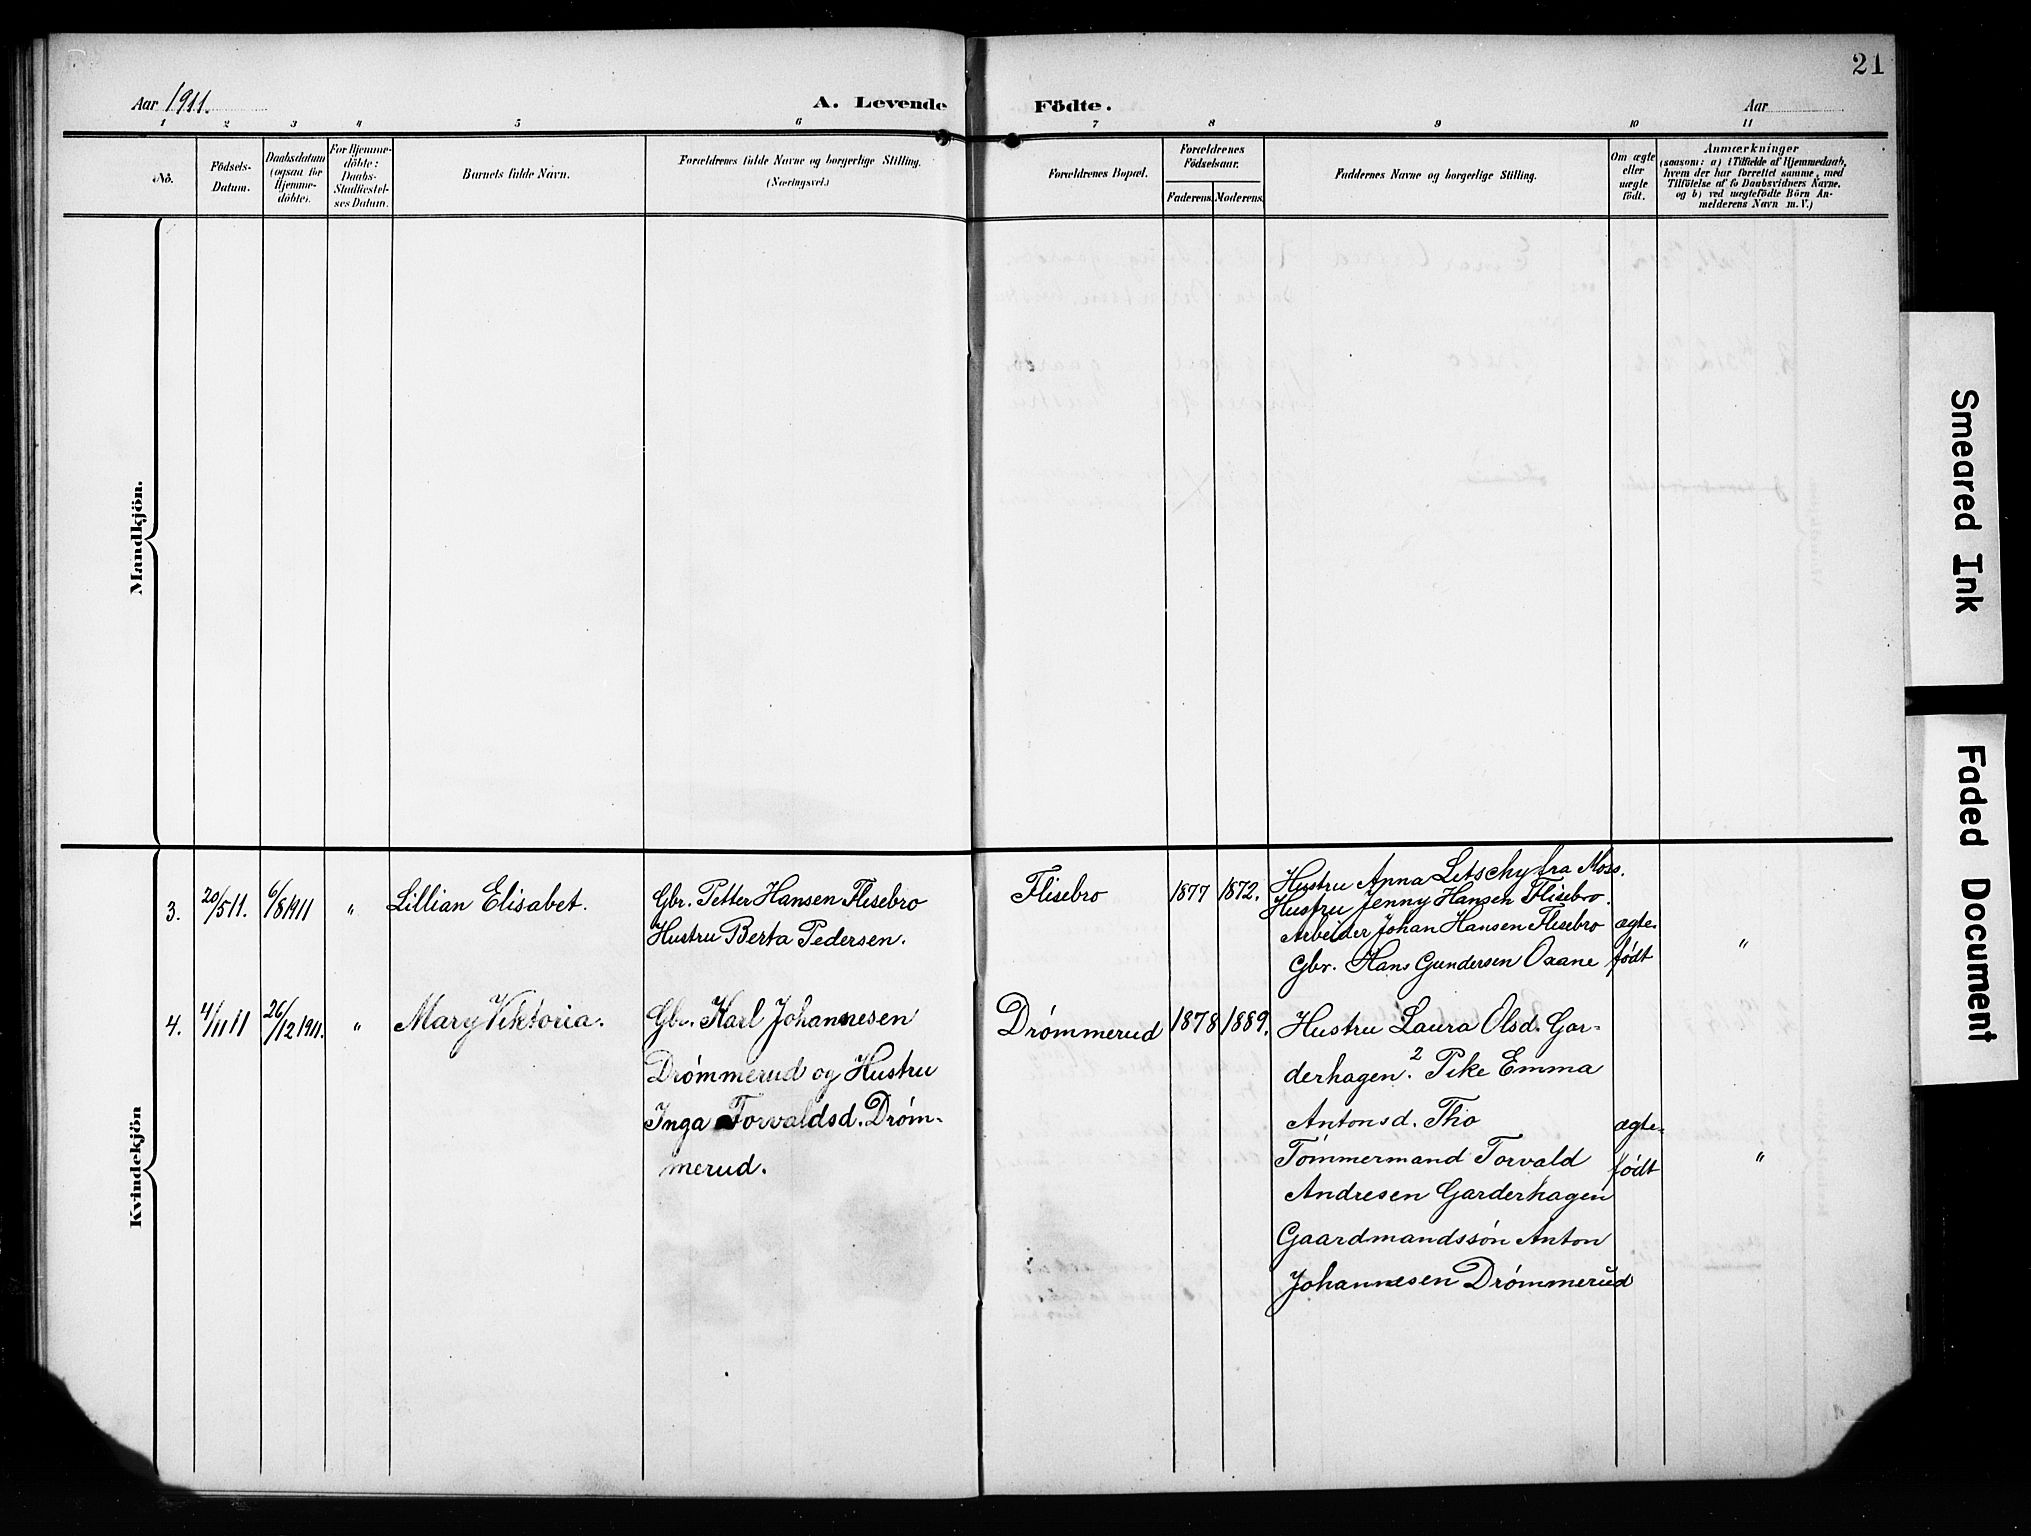 21
Aar 1911.
A. Levende
Födte.
Aar
1 2 3 4 5 6 7 8 9 10 11
No.
Födsels-
Datum.
Daabsdatum
(ogsaa for
Hjemme-
döbte).
For Hjemme-
döbte:
Daabs-
Stadfæstel-
ses Datum.
Barnets fulde Navn.
Forældrenes fulde Navne og borgerlige Stilling.
(Næringsvei.)
Forældrenes Bopæl.
Forældrenes
Födselsaar.
Faderens. Moderens.
Faddernes Navne og borgerlige Stilling.
Om ægte
eller
uægte
födt.
Anmærkninger
(saasom: a) i Tilfælde af Hjemmedaab,
hvem der har forrettet samme, med
Tilföielse af to Daabsvidners Navne,
og b) ved uægtefödte Börn An-
melderens Navn m. V.)
Mandkjön.
Kvindekjön
3.
20/5 11.
6/8 1911
"
Lillian Elisabet.
Gbr. Petter Hansen Flisebro
Hustru Berta Pedersen.
Flisebro
1877
1872.
Hustru Anna Letschy fra Moss.
Hustru Jenny Hansen Flisebro.
Arbeider Johan Hansen Flisebro
Gbr. Hans Gundersen Oaane
ægte-
født
"
4.
4/11 11
26/12 1911.
"
Mary Viktoria.
Gbr. Karl Johannesen
Drømmerud og Hustru
Inga Torvaldsd. Drøm-
merud.
Drømmerud
1878
1889.
Hustru Laura Olsd. Gar-
derhagen. 2 Pike Emma
Antonsd. Tho
Tømmermand Torvald
Andresen Garderhagen
Gaardmandssøn Anton
Johannesen Drømmerud
ægte-
født
"
Smeared Ink
Faded Document